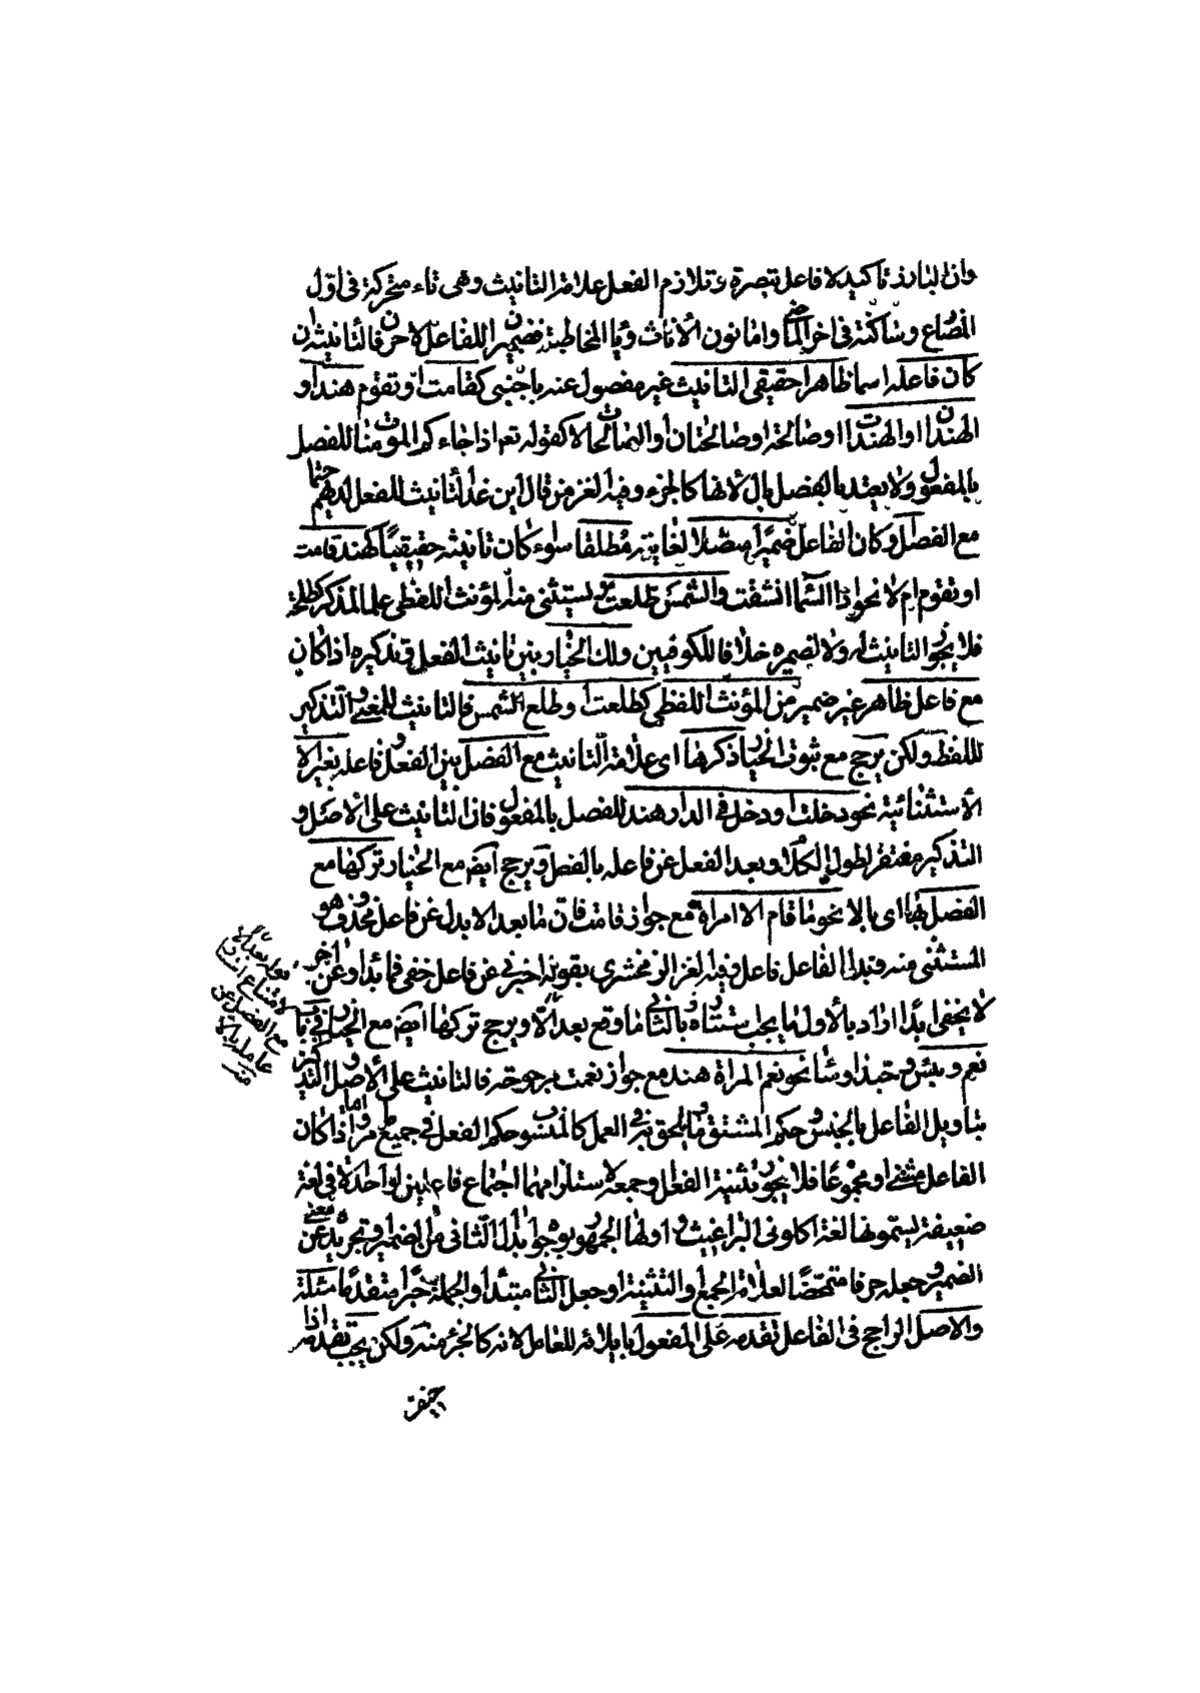 وان البارز تأكيد لا فاعل تبصرة وتلازم الفعل علامة التانيث وهى تاء متحركة فى اول
المضارع وساكنة فى اخر الماضى واما نون الاناث ويا المخاطبة فضميران للفاعل لا حرفان فالتأنيث ان
كان فاعله اسما ظاهرا حقيقى التانيث غير مفصول عنه باجنبى كقامت او تقوم هند او
الهندان او الهندات او صالحة او صالحتان او الصالحات لا كقوله تعم اذا جاءكم المؤمنات للفصل
بالمفعول ولا يعتد بالفصل بال لأنها كالجزء وفيه لغز من قال اين غدا تانيث للفعل لديهم حتما
مع الفصل وكان الفاعل ضميرا متصلا لغايته مطلقا سواء كان تانيثه حقيقيا كهند قامت
او تقوم ام لا نحو اذا السماء انشقت والشمس طلعت ويستثنى منه المؤنث اللفظى علما لمذكر كطلحة
فلا يجوز التانيث له ولا لضميره خلافا للكوفيين ولك الخيار بين تانيث الفعل وتذكيره اذا كان
مع فاعل ظاهر غير ضمير من المؤنث اللفظى كطلعت او طلع الشمس فالتانيث للمعنى والتذكير
لللفظ ولكن يرجح مع ثبوت الخيار ذكرها اى علامة التانيث مع الفصل بين الفعل وفاعله بغير الا
الأستثنائية نحو دخلت او دخل فى الدار هند للفصل بالمفعول فان التانيث على الاصل و
التذكير مغتفر لطول الكلام وبعد الفعل عن فاعله بالفصل ويرجح ايضا مع الخيار تركها مع
الفصل بها اى بالا نحو ما قام الا امراة مع جواز قامت فان ما بعد الا بدل عن فاعل محذوف هو
المستثنى منه وبدل الفاعل فاعل وفيه لغز الزمخشرى بقوله اخبرنى عن فاعل خفى فما بدا وعن اخر
لا يخفى ابدا اراد بالأول ما يجب استتاره بالثانى ما وقع بعد الا ويرجح تركها ايضا مع الخيار فى باب
نعم وبئس وحبذا وساء نحو نعم المراة هند مع جواز نعمت مرجوحة فالتانيث على الأصل والتذكير
بتاويل الفاعل بالجنس وحكم المشتق وما يلحق به فى العمل كالمنسوب حكم الفعل فى جميع ما مر واما اذا كان
الفاعل مثنى او مجموعا فلا يجوز تثنية الفعل وجمعه لاستلزامهما اجتماع فاعلين لواحد الا فى لغة
ضعيفة يسمونها لغة اكلونى البراغيث واولها الجمهور بوجوه ابدال الثانى من الضمير وتجريده عن معنى
الضمير وجعله حرفا متمحضا لعلامة الجمع والتثنية او جعل الثانى مبتدأ والجملة خبرا متقدما مثلة
والاصل الراجح فى الفاعل تقدمه على المفعول بايلائه للعامل لانه كالجزء منه ولكن يجب تقدمه اذا